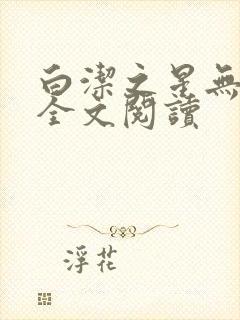 白潔之星無
全文閱讀
浮花